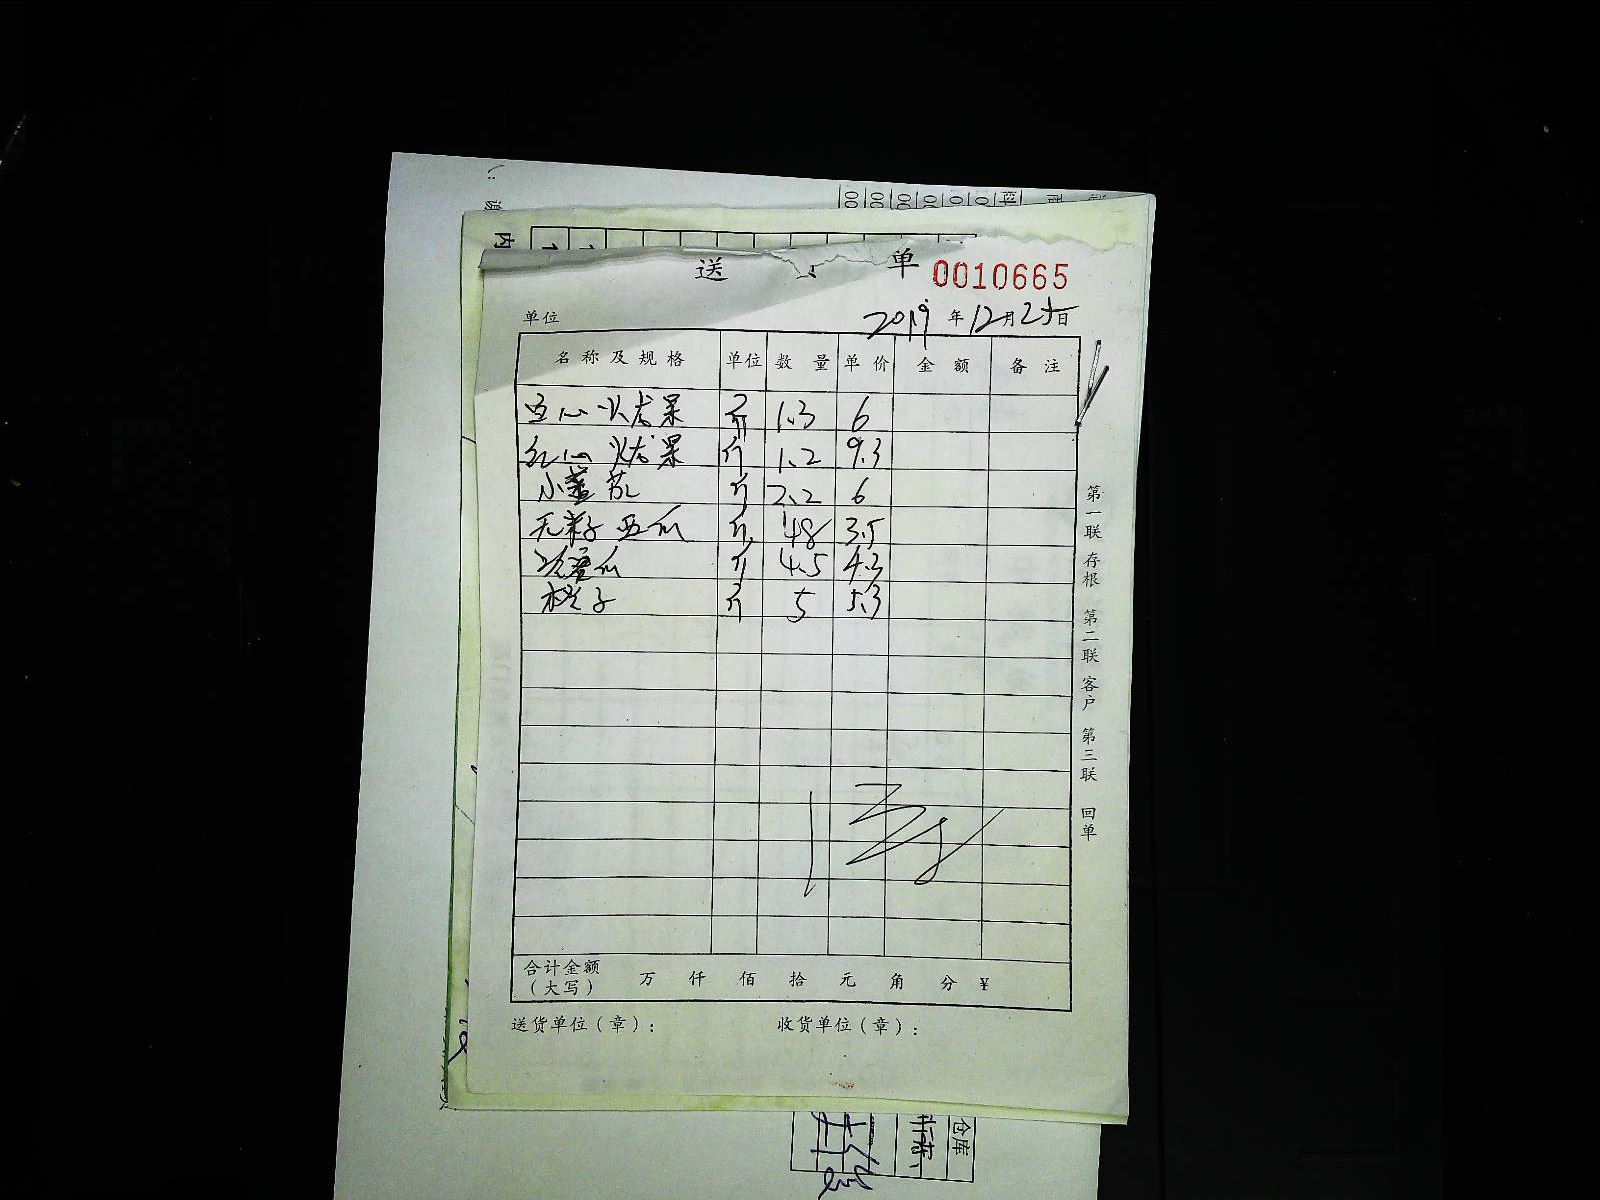 送 单 0010665
单位 2019年12月25日
名称及规格 单位 数量 单价 金额 备注
白心火龙果 斤 1.3 6
红心火龙果 斤 1.2 9.3
小 斤 2.2 6
无籽西瓜 斤 48 3.5
蜜瓜 斤 4.5 4.3
橙子 斤 5 5.3
合计金额（大写） 万 仟 佰 拾 元 角 分 ¥
送货单位（章）： 收货单位（章）：
第一联 存根 第二联 客户 第三联 回单
仓库